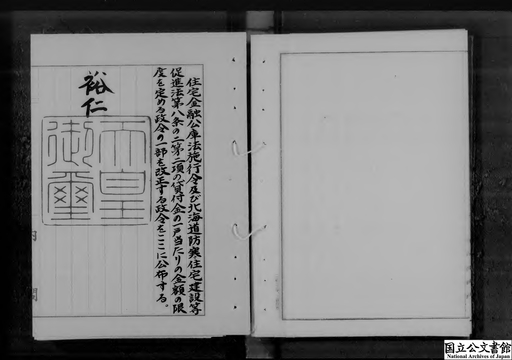 住宅金融公庫法施行令及び北海道防寒住宅建設等
促進法第八条の二第二項の貸付金の一戸当たりの金額の限
度を定める政令の一部を改正する政令をここに公布する。
裕仁
天皇
御璽
内
閣
国立公文書館
National Archives of Japan